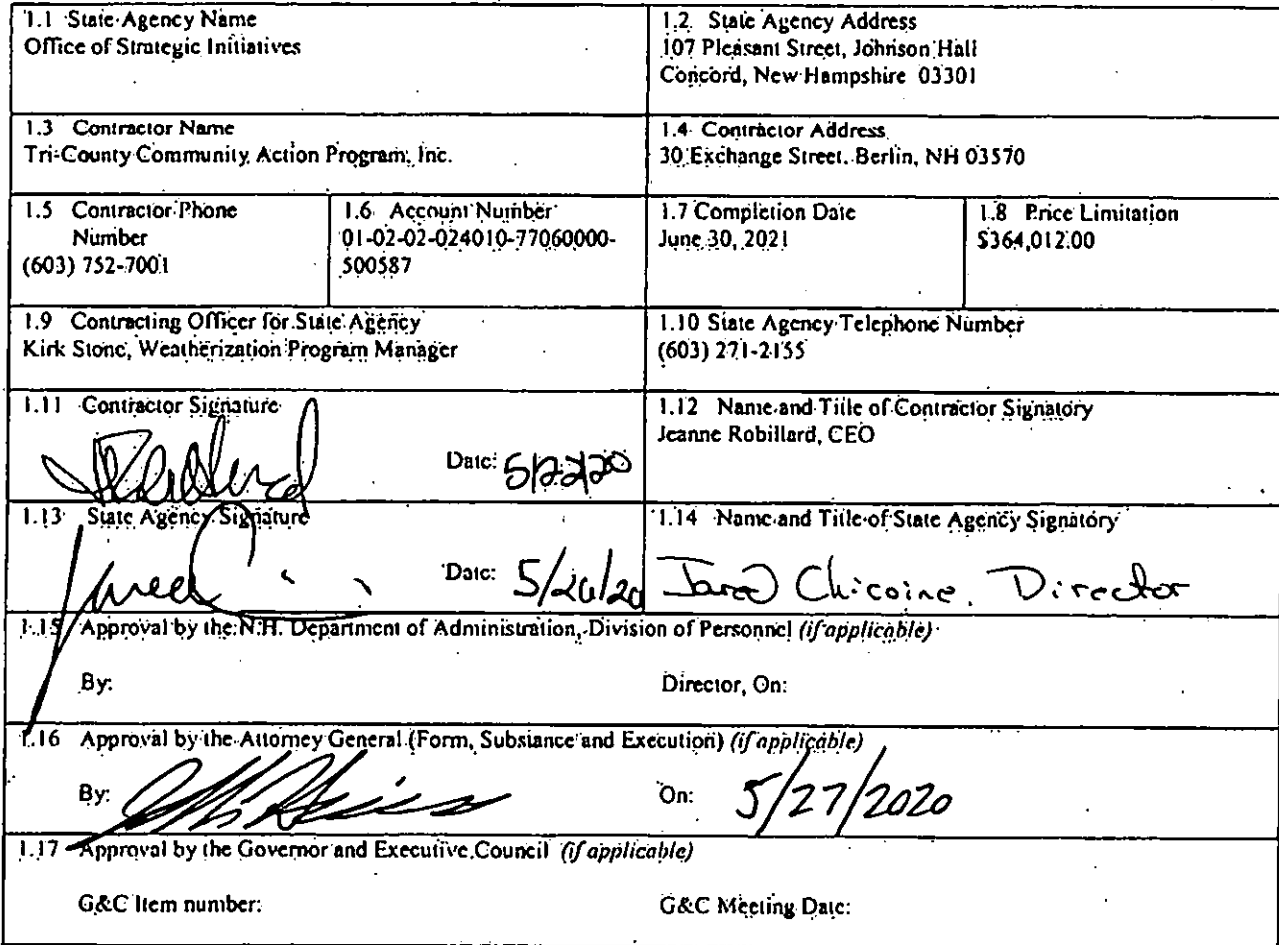 1.1 State Agency Name
Office of Strategic Initiatives
1.2 State Agency Address
107 Pleasant Street, Johnson Hall
Concord, New Hampshire 03301
1.3 Contractor Name
Tri-County Community Action Program, Inc.
1.4 Contractor Address
30 Exchange Street, Berlin, NH 03570
1.5 Contractor Phone
Number
(603) 752-7001
1.6 Account Number
01-02-02-024010-77060000-
500587
1.7 Completion Date
June 30, 2021
1.8 Price Limitation
$364,012.00
1.9 Contracting Officer for State Agency
Kirk Stone, Weatherization Program Manager
1.10 State Agency Telephone Number
(603) 271-2155
1.11 Contractor Signature
Date: 5/22/20
1.12 Name and Title of Contractor Signatory
Jeanne Robillard, CEO
1.13 State Agency Signature
Date: 5/26/20
1.14 Name and Title of State Agency Signatory
Jared Chicoine, Director
1.15 Approval by the N.H. Department of Administration, Division of Personnel (if applicable)
By: Director, On:
1.16 Approval by the Attorney General (Form, Substance and Execution) (if applicable)
By: On: 5/27/2020
1.17 Approval by the Governor and Executive Council (if applicable)
G&C Item number: G&C Meeting Date: